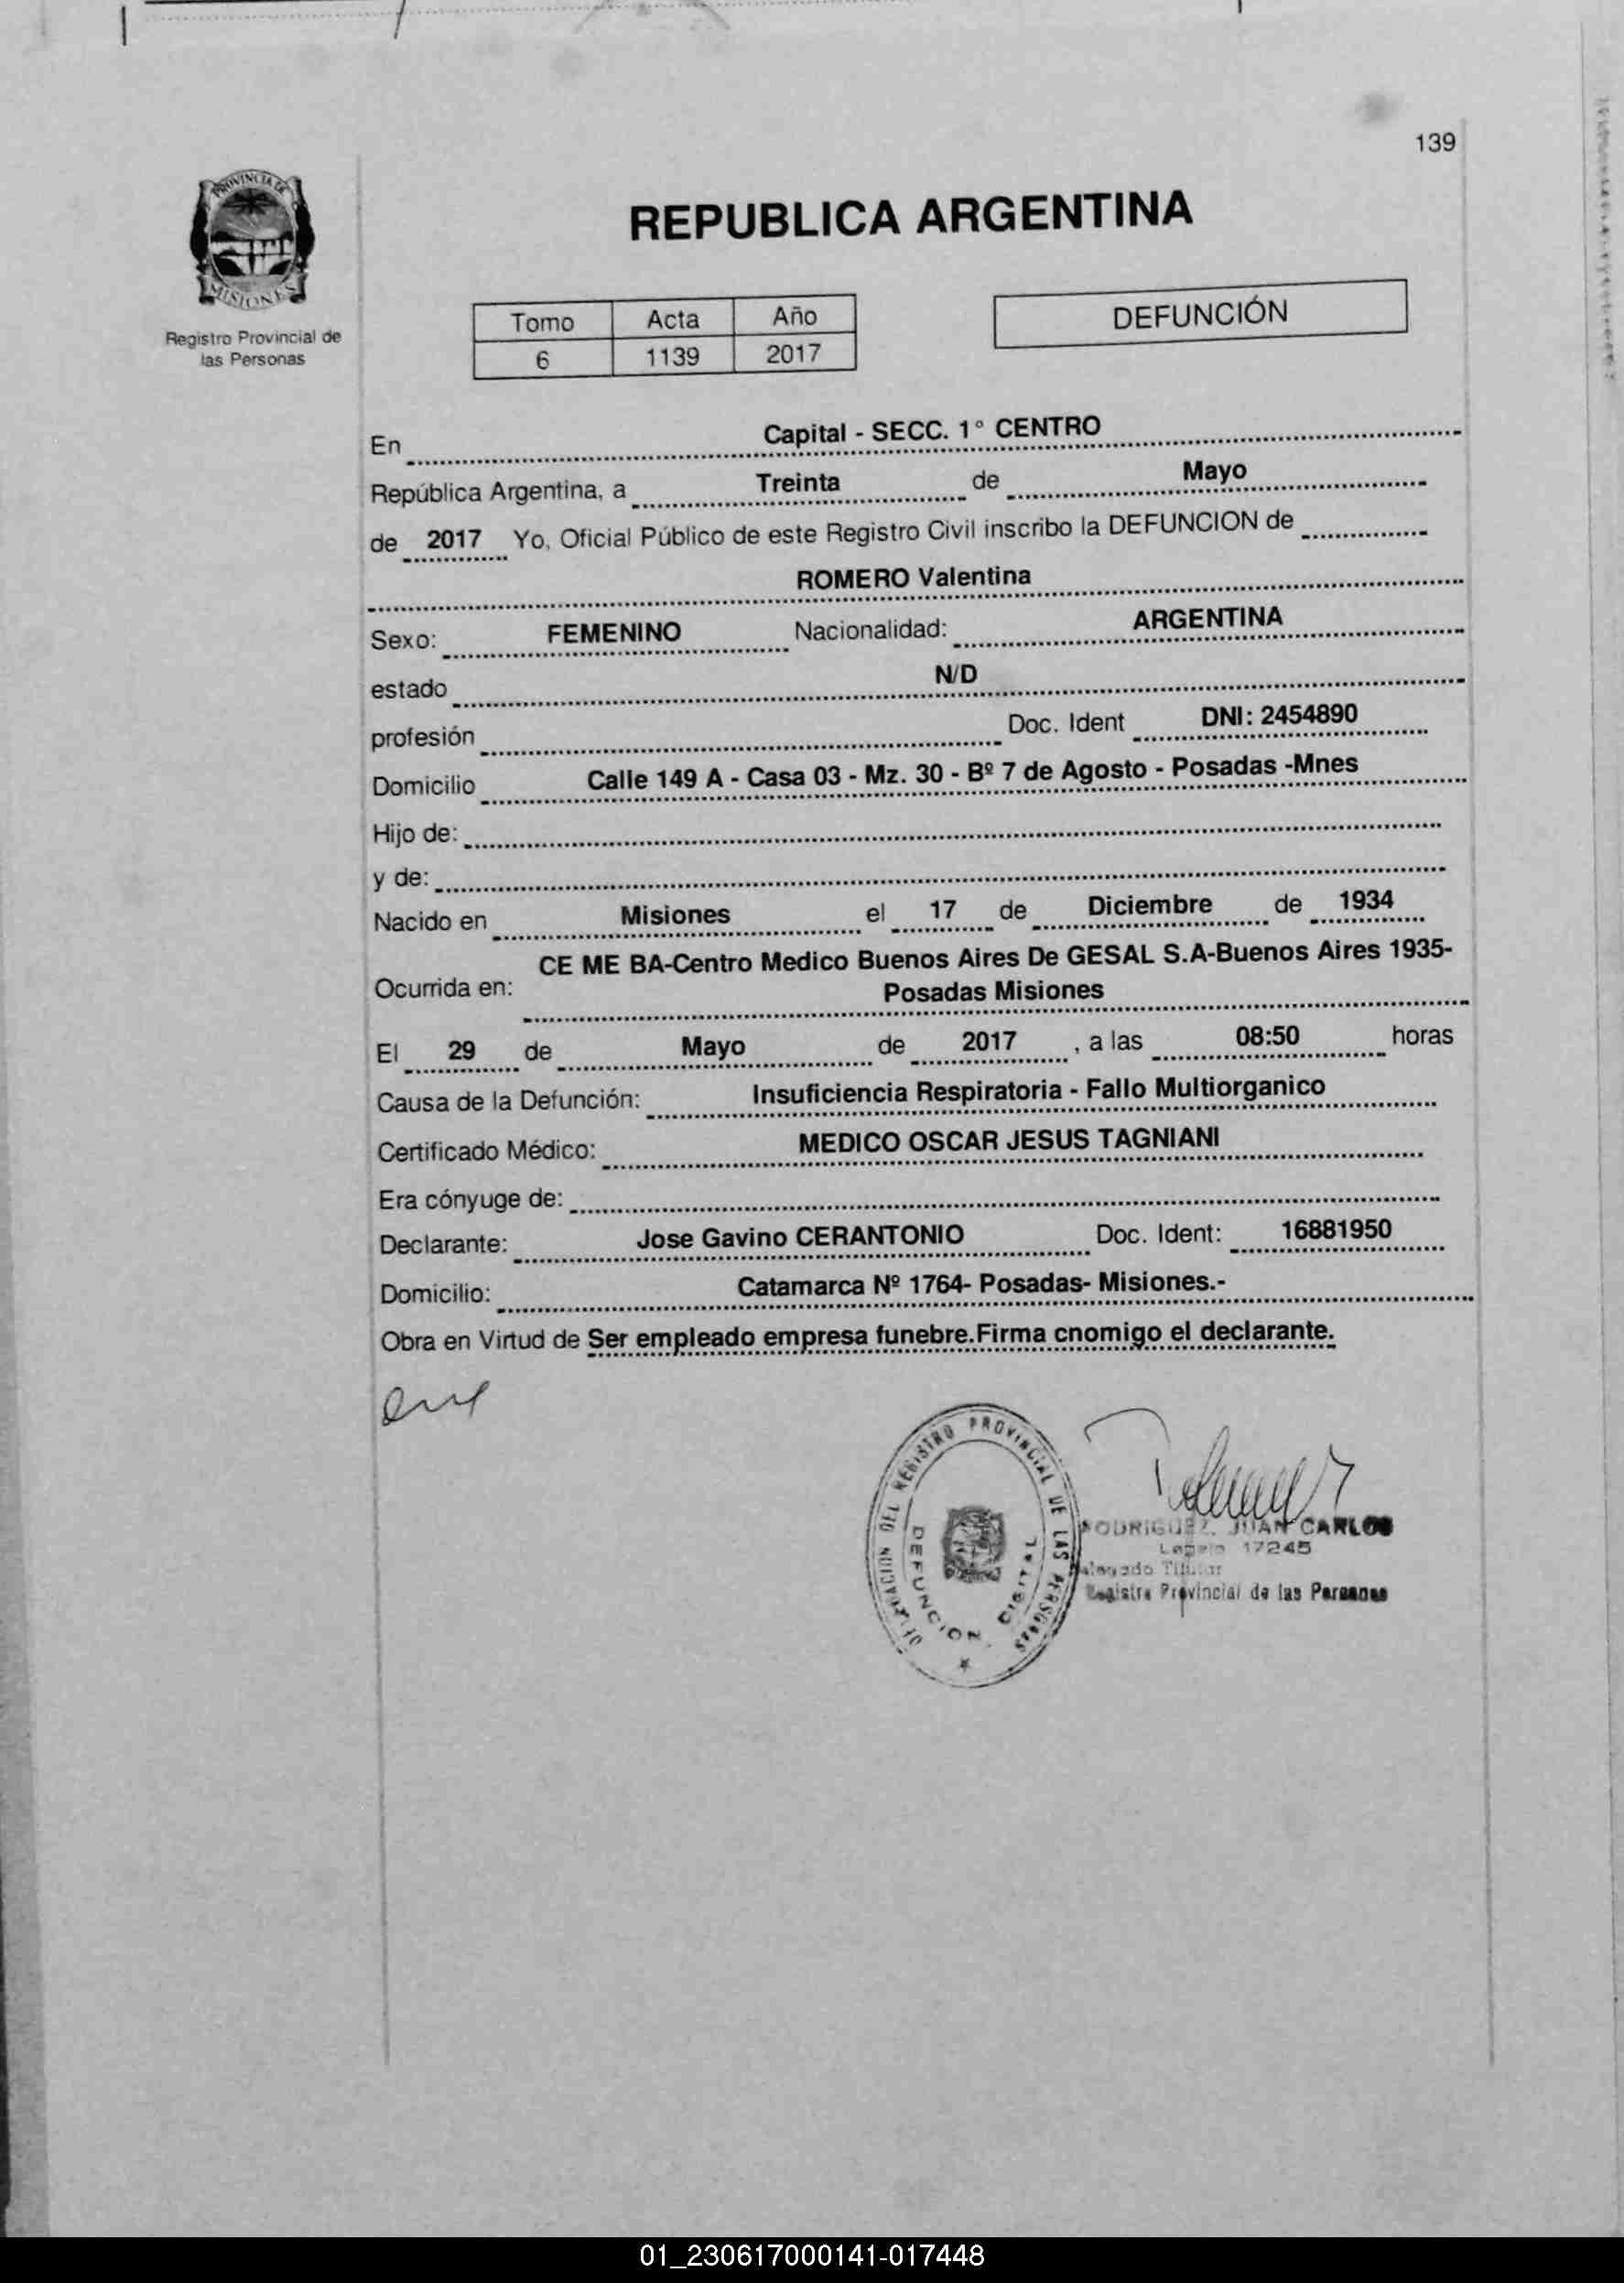 139
PROVINCIA DE
MISIONES
Registro Provincial de
las Personas
REPUBLICA ARGENTINA
Tomo Acta Año
6 1139 2017
DEFUNCIÓN
En Capital - SECC. 1° CENTRO
República Argentina, a Treinta de Mayo
de 2017 Yo, Oficial Público de este Registro Civil inscribo la DEFUNCION de
ROMERO Valentina
Sexo: FEMENINO Nacionalidad: ARGENTINA
estado N/D
profesión Doc. Ident DNI: 2454890
Domicilio Calle 149 A - Casa 03 - Mz. 30 - Bº 7 de Agosto - Posadas -Mnes
Hijo de:
y de:
Nacido en Misiones el 17 de Diciembre de 1934
CE ME BA-Centro Medico Buenos Aires De GESAL S.A-Buenos Aires 1935-
Ocurrida en: Posadas Misiones
El 29 de Mayo de 2017 , a las 08:50 horas
Causa de la Defunción: Insuficiencia Respiratoria - Fallo Multiorganico
Certificado Médico: MEDICO OSCAR JESUS TAGNIANI
Era cónyuge de:
Declarante: Jose Gavino CERANTONIO Doc. Ident: 16881950
Domicilio: Catamarca Nº 1764- Posadas- Misiones.-
Obra en Virtud de Ser empleado empresa funebre.Firma cnomigo el declarante.
DEL REGISTRO PROVINCIAL DE LAS PERSONAS
DEFUNCION DIGITAL
RODRIGUEZ, JUAN CARLOS
Legajo 17245
Delegado Titular
Registro Provincial de las Personas
01_230617000141-017448